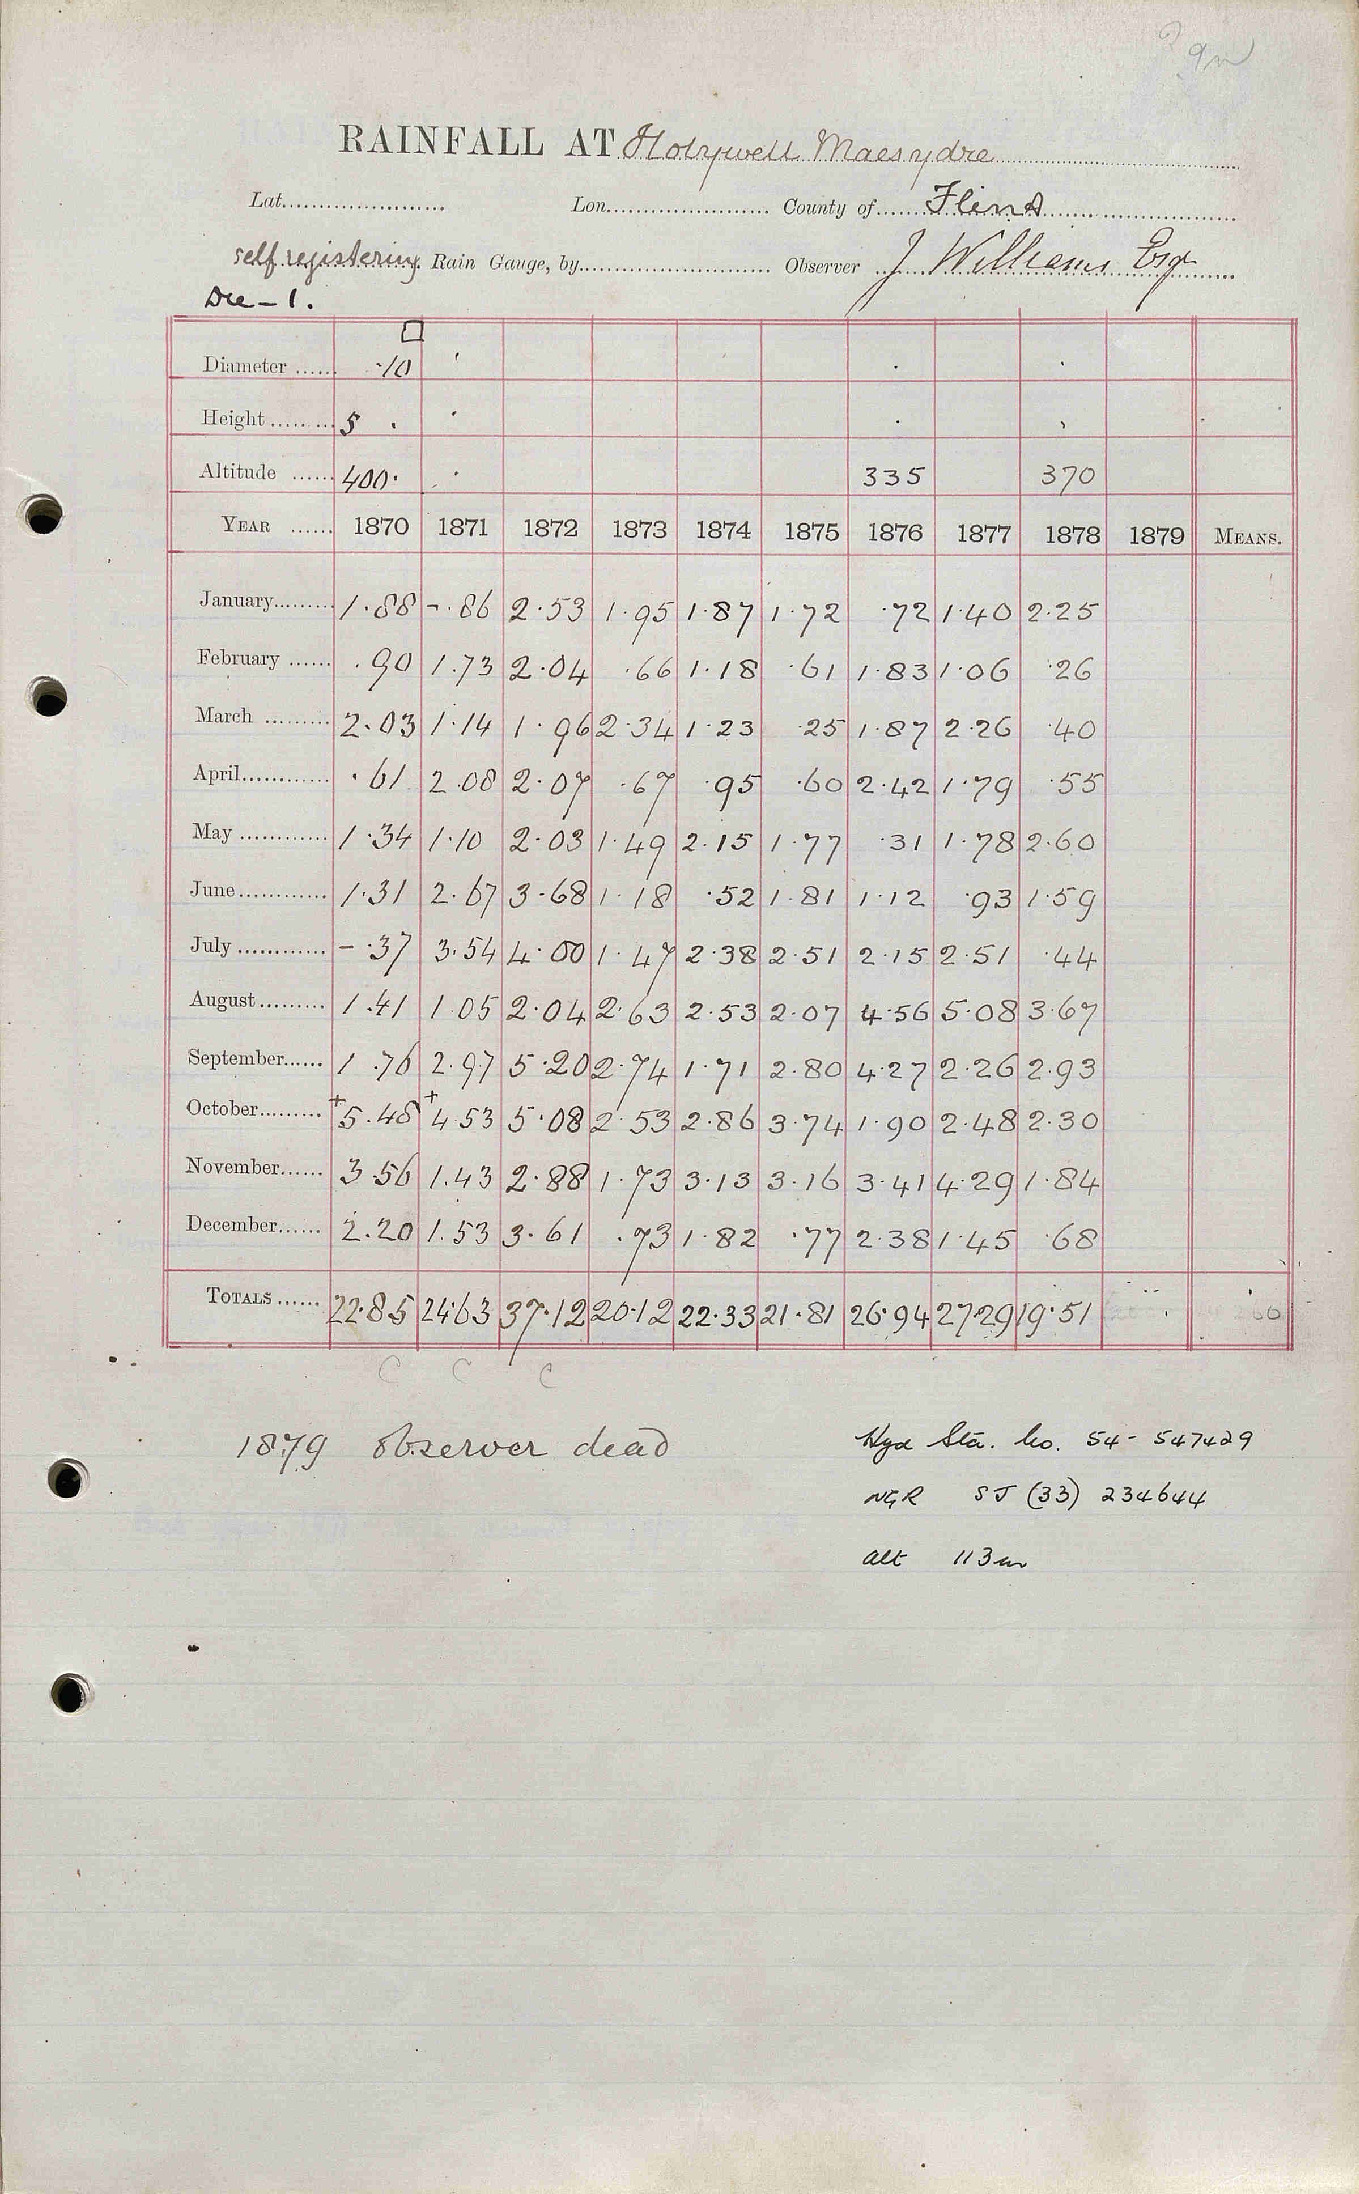 RAINFALL AT Holywell Maesydre
Lat. Lon. County of Flint
self registering Rain Gauge, by Observer J Williams Esq
Dec - 1.
Diameter ...... ·10
Height ......... 5 .
Altitude ...... 400· 335 370
YEAR ...... 1870 1871 1872 1873 1874 1875 1876 1877 1878 1879 MEANS.
January......... 1.88 -.86 2.53 1.95 1.87 1.72 .72 1.40 2.25
February ...... .90 1.73 2.04 .66 1.18 .61 1.83 1.06 .26
March ......... 2.03 1.14 1.96 2.34 1.23 .25 1.87 2.26 .40
April............ .61 2.08 2.07 .67 .95 .60 2.42 1.79 .55
May ............ 1.34 1.10 2.03 1.49 2.15 1.77 .31 1.78 2.60
June............ 1.31 2.67 3.68 1.18 .52 1.81 1.12 .93 1.59
July ............ -.37 3.54 4.00 1.47 2.38 2.51 2.15 2.51 .44
August......... 1.41 1.05 2.04 2.63 2.53 2.07 4.56 5.08 3.67
September...... 1.76 2.97 5.20 2.74 1.71 2.80 4.27 2.26 2.93
October......... +5.48 +4.53 5.08 2.53 2.86 3.74 1.90 2.48 2.30
November...... 3.56 1.43 2.88 1.73 3.13 3.16 3.41 4.29 1.84
December...... 2.20 1.53 3.61 .73 1.82 .77 2.38 1.45 .68
TOTALS ...... 22.85 24.63 37.12 20.12 22.33 21.81 26.94 27.29 19.51
C C C
1879 observer dead
Hyd Sta. No. 54- 547429
NGR SJ (33) 234644
alt 113m